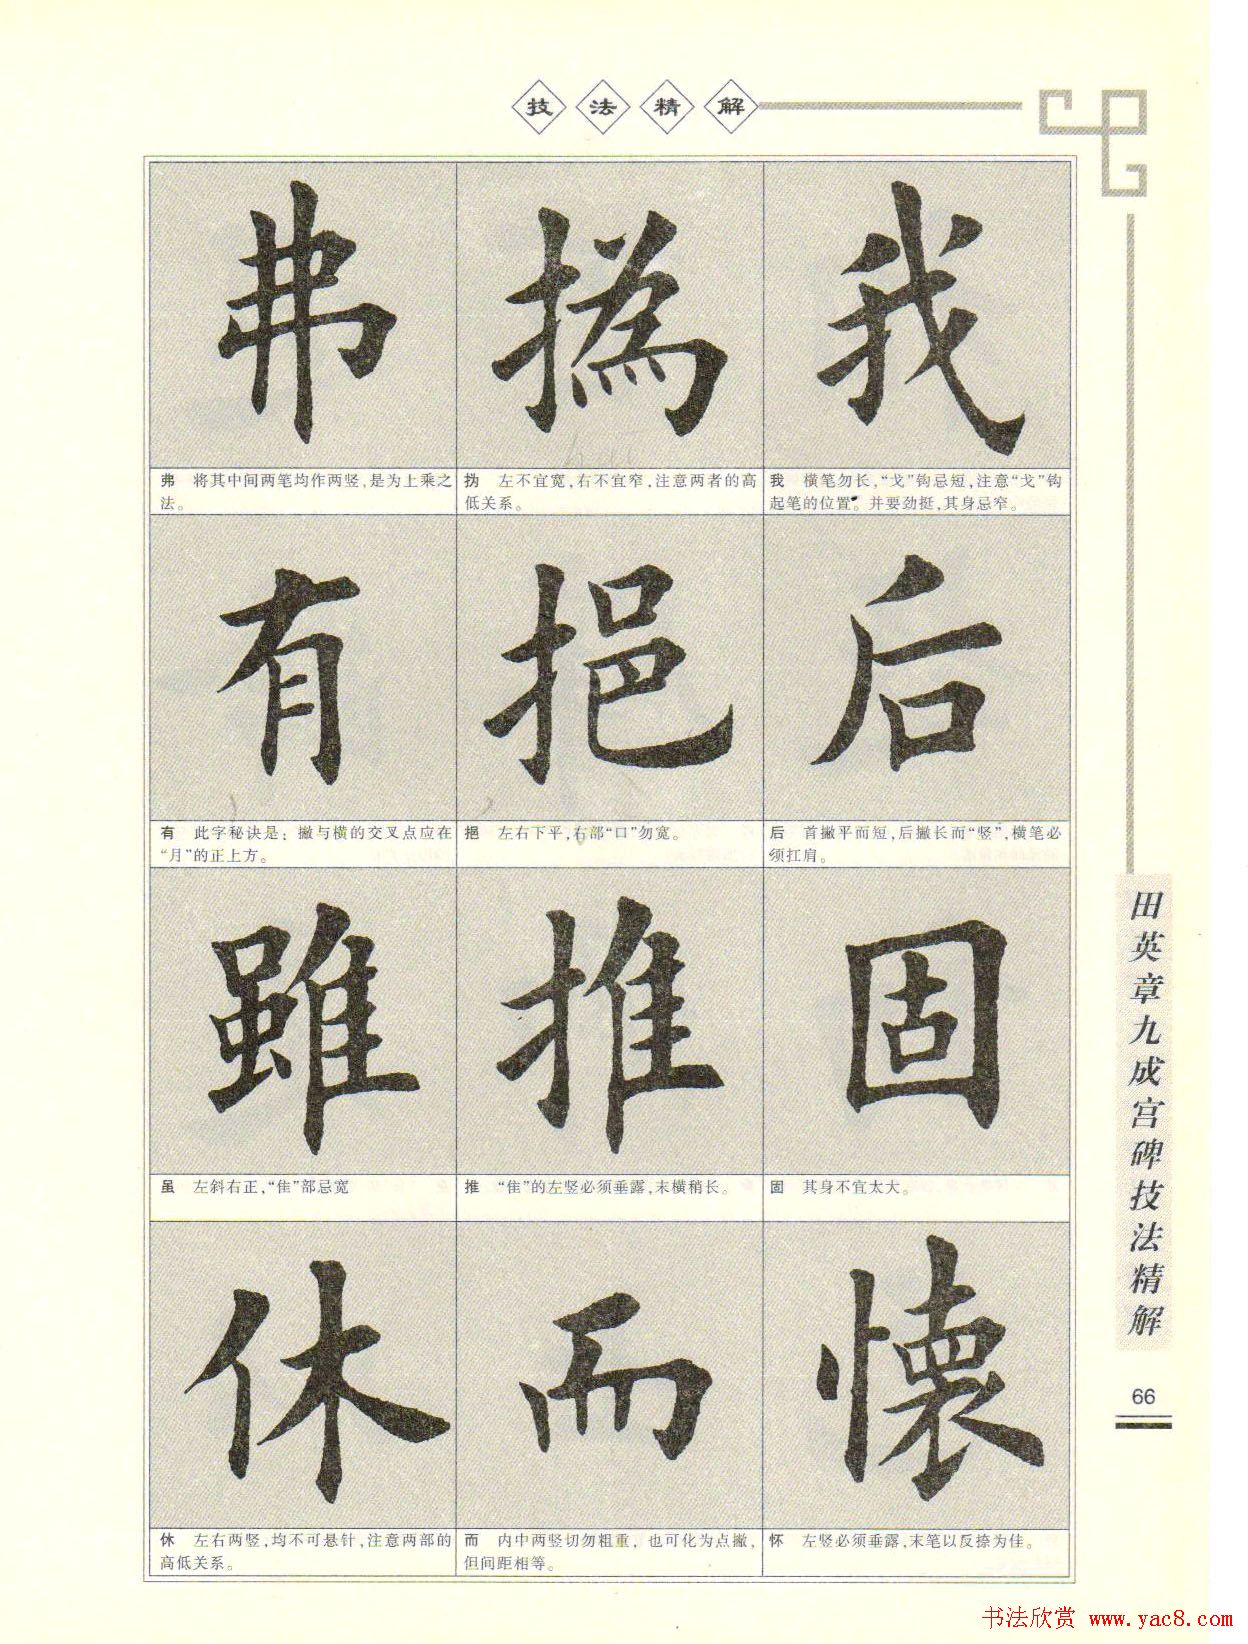 技法精解
弗 撝 我
弗 将其中间两笔均作两竖,是为上乘之
法。
㧑 左不宜宽,右不宜窄,注意两者的高
低关系。
我 横笔勿长,“戈”钩忌短,注意“戈”钩
起笔的位置。并要劲挺,其身忌窄。
有 挹 后
有 此字秘诀是:撇与横的交叉点应在
“月”的正上方。
挹 左右下平,右部“口”勿宽。
后 首撇平而短,后撇长而“竖”,横笔必
须扛肩。
雖 推 固
虽 左斜右正,“隹”部忌宽
推 “隹”的左竖必须垂露,末横稍长。
固 其身不宜太大。
休 而 懷
休 左右两竖,均不可悬针,注意两部的
高低关系。
而 内中两竖切勿粗重,也可化为点撇,
但间距相等。
怀 左竖必须垂露,末笔以反捺为佳。
田英章九成宫碑技法精解
66
书法欣赏 www.yac8.com